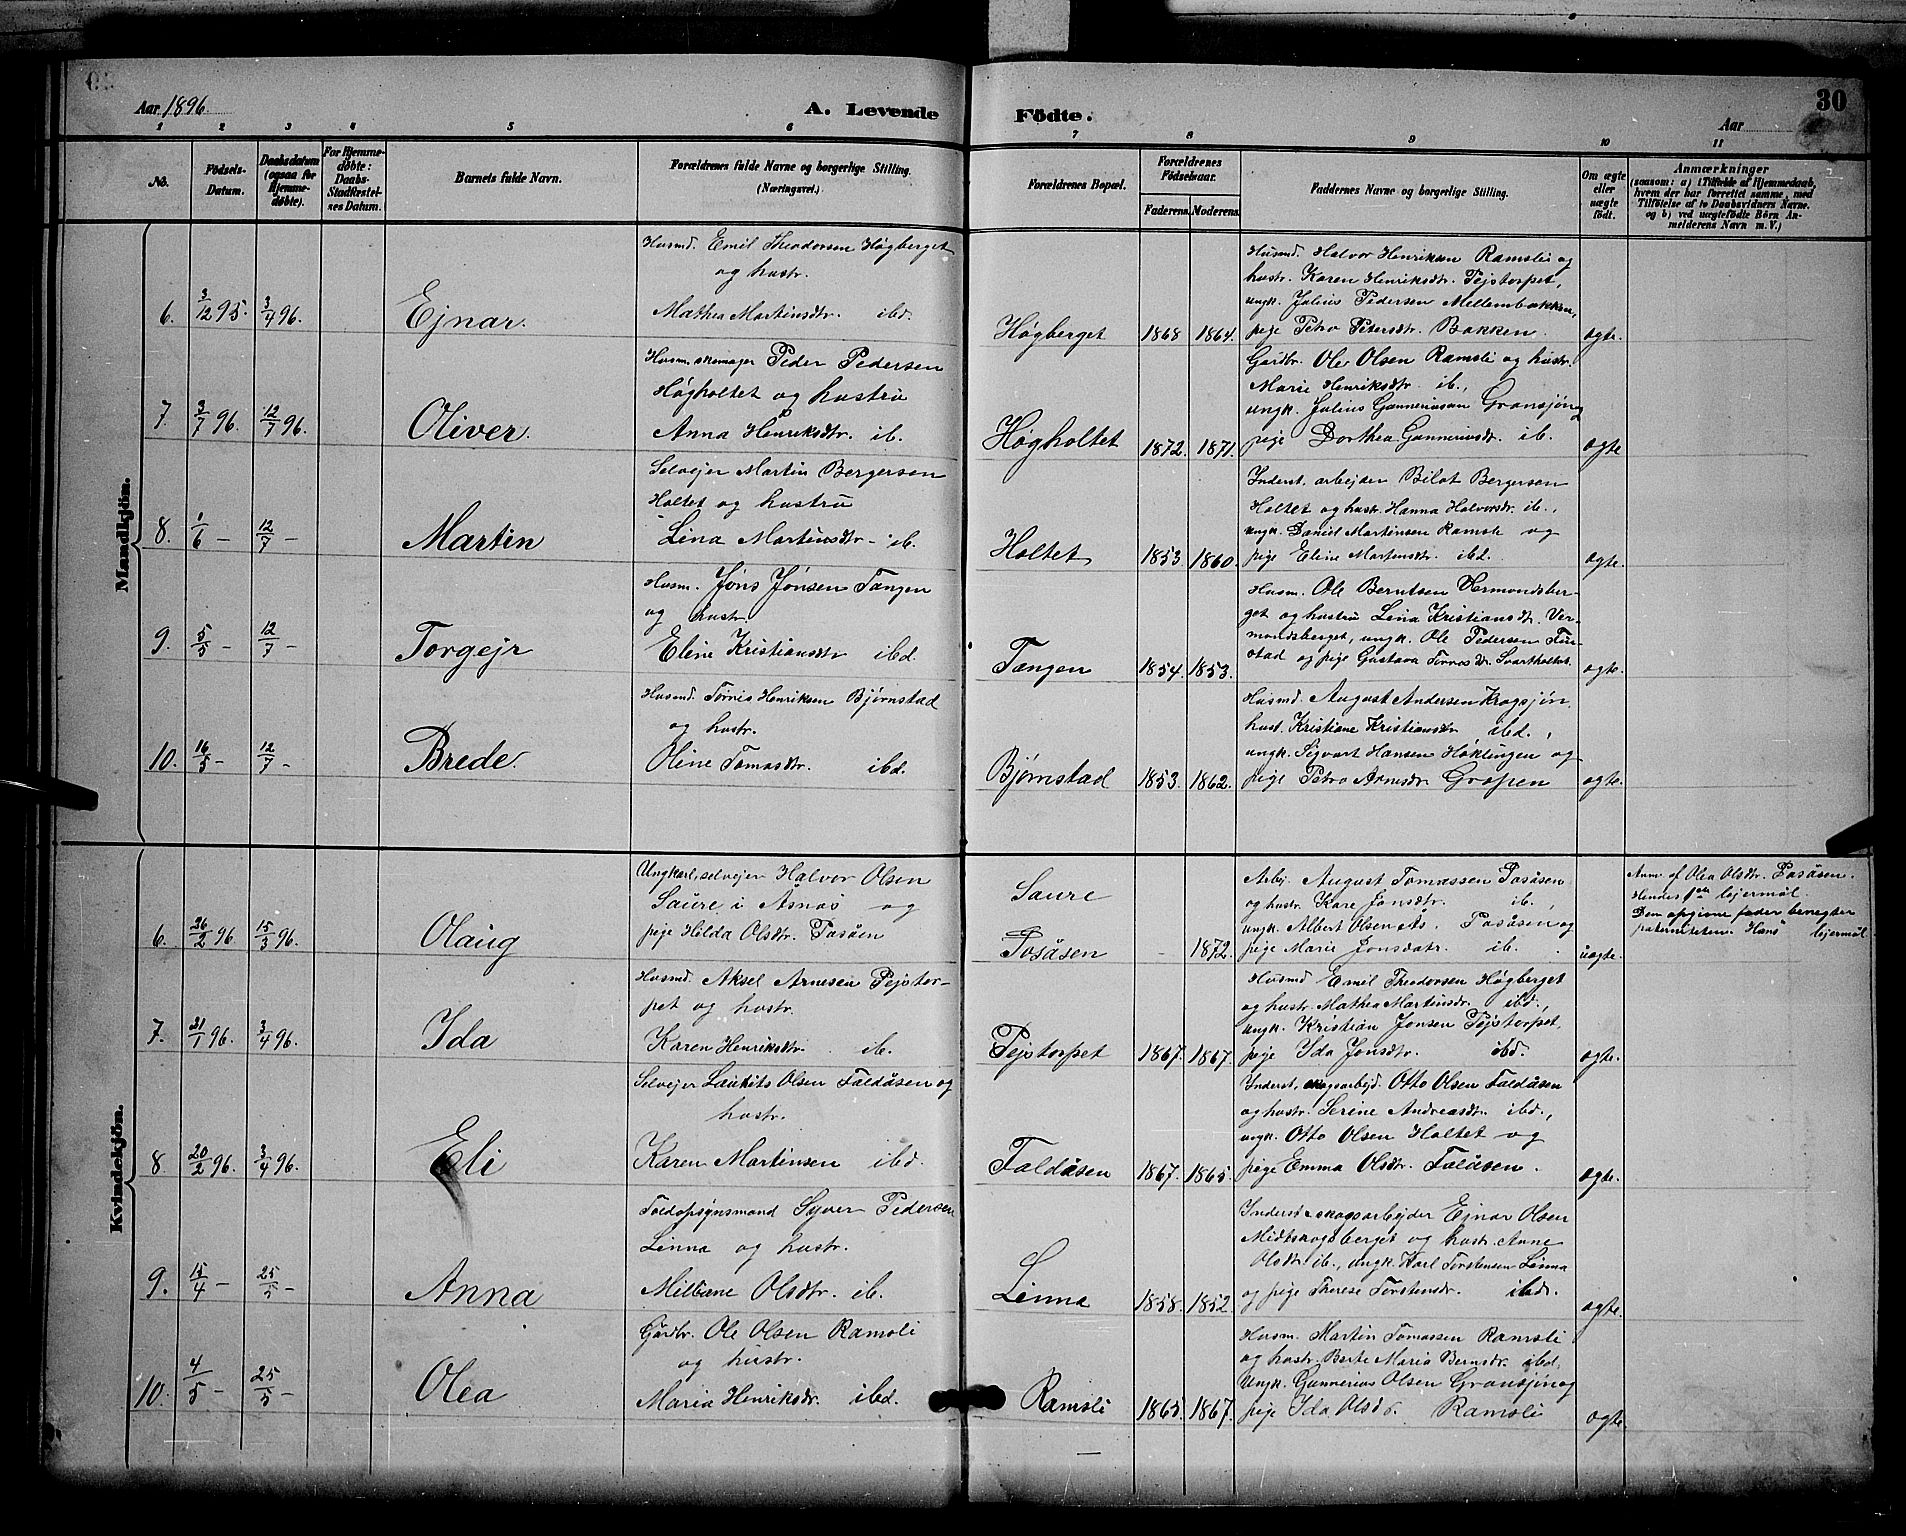 30
Aar 1896
A. Levende Födte.
Aar
1 2 3 4 5 6 7 8 9 10 11
No.
Födsels-Datum.
Daabsdatum (ogsaa for Hjemmedøbte).
For Hjemmedøbte: Daabs-Stadfæstelsens Datum.
Barnets fulde Navn.
Forældrenes fulde Navne og borgerlige Stilling. (Næringsvei.)
Forældrenes Bopæl.
Forældrenes Födselsaar.
Faderens. Moderens.
Faddernes Navne og borgerlige Stilling.
Om ægte eller uægte födt.
Anmærkninger
(saasom: a) i Tilfælde af Hjemmedaab, hvem der har forrettet samme, med Tilföielse af to Daabsvidners Navne. og b) ved uægtefödte Börn Anmelderens Navn m. V.)
Mandkjön.
6. 3/12 95. 3/4 96. Ejnar.
Husmd. Emil Theodorsen Høgberget
og hustr.
Mathea Martinsdtr. ibd.
Høgberget 1868 1864.
Husmd. Halvor Henriksen Ramsli og
hustr. Karen Henriksdtr. Pejstorpet,
ungk. Julius Pedersen Mellembakken,
pige Petra Petersdtr. Bakken.
ægte.
7. 3/7 96. 12/7 96. Oliver.
Husm. skomager Peder Pedersen
Høgholtet og hustru
Anna Henriksdtr. ib.
Høgholtet 1872. 1871.
Gårdbr. Ole Olsen Ramsli og hustr.
Marie Henriksdtr. ib.,
ungk. Julius Gunneriusen Gransjøn og
pige Dorthea Gunneriusdtr. ib.
ægte
8. 1/6 – 12/7 – Martin
Selvejer Martin Bergersen
Holtet og hustru
Lina Martinsdtr. ib.
Holtet 1853. 1860.
Inderst. arbejder Bilot Bergersen
Holtet og hustr. Hanna Halvorsdtr. ib.,
ungk. Daniel Martinsen Ramsle og
pige Eline Martinsdtr. ibd.
ægte.
9. 5/5 – 12/7 – Torgejr
Husm. Jöns Jönsen Tangen
og hustr.
Eline Kristiansdtr ibd.
Tangen 1854. 1853.
Husm. Ole Berntsen Vermundsber-
get og hustru Lina Kristiansdtr. Ver-
mundsberget, ungk. Ole Pedersen
og pige Gustava Svartholtet.
ægte.
10. 16/5 – 12/7 – Brede.
Husmd. Tørris Henriksen Bjørnstad
og hustr.
Oline Tomasdtr. ibd.
Bjørnstad 1853. 1862.
Husmd. August Andersen Kragsjøn,
hust. Kristiane Kristiansdtr ibd.,
ungk. Sigvart Hansen og
pige Petra Arnesdtr. Grafen
ægte.
Kvindekjön.
6. 26/2 96. 15/3 96. Olaug
Ungkarl, selvejer Halvor Olsen
Saure i Åsnæs og
pige Hilda Olsdtr. Posåsen
Saure
Posåsen – 1872.
Arbj. August Tomassen Posåsen
og hustr. Kare Jonsdtr. ib.,
ungk. Albert Olsen Posåsen og
pige Marie Jonsdatr. ib.
uægte.
Anm. af Olea Olsdtr. Posåsen.
Hendes 1ste lejermål.
Den opgivne fader benegter
paterniteten. Hans lejermål.
7. 31/1 96. 3/4 96. Ida
Husmd Aksel Arnesen Pejstor-
pet og hustr.
Karen Henriksdtr. ib.
Pejstorpet 1867. 1867.
Husmd Emil Theodorsen Høgberget
og hustr. Mathea Martinsdr. ibd.,
ungk. Kristian Jonsen Pejstorpet,
pige Ida Jonsdtr. ibd.
ægte.
8. 20/2 96. 3/4 96. Eli
Selvejer Laurits Olsen Faldåsen og
hustr.
Karen Martinsen ibd.
Faldåsen 1867. 1865.
Inderst, skogsarbejd. Otto Olsen Faldåsen
og hustr. Serine Andreasdtr. ibd.,
ungk. Otto Olsen Holtet og
pige Emma Olsdtr. Faldåsen.
ægte.
9. 15/4 – 25/5 – Anna
Foldopsynsmand Syver Pedersen
Linna og hustr.
Milbane Olsdtr. ib.
Linna 1858. 1852.
Inderst skogsarbejder Ejnar Olsen
Midtskogsberget og hustr. Anne
Olsdtr ib., ungk. Karl Torstensen Linna
og pige Therese Torstensdr. ibd.
ægte
10. 4/5 – 25/5 – Olea
Gårdbr. Ole Olsen Ramsli
og hustr.
Maria Henriksdtr. ibd.
Ramsli 1865. 1867.
Husm. Martin Tomassen Ramsli
og hustr. Berte Maria Berntsdr. ibd.
Ungk. Gunnerius Olsen Gransjøn og
pige Ida Olsdtr. Ramsli
ægte